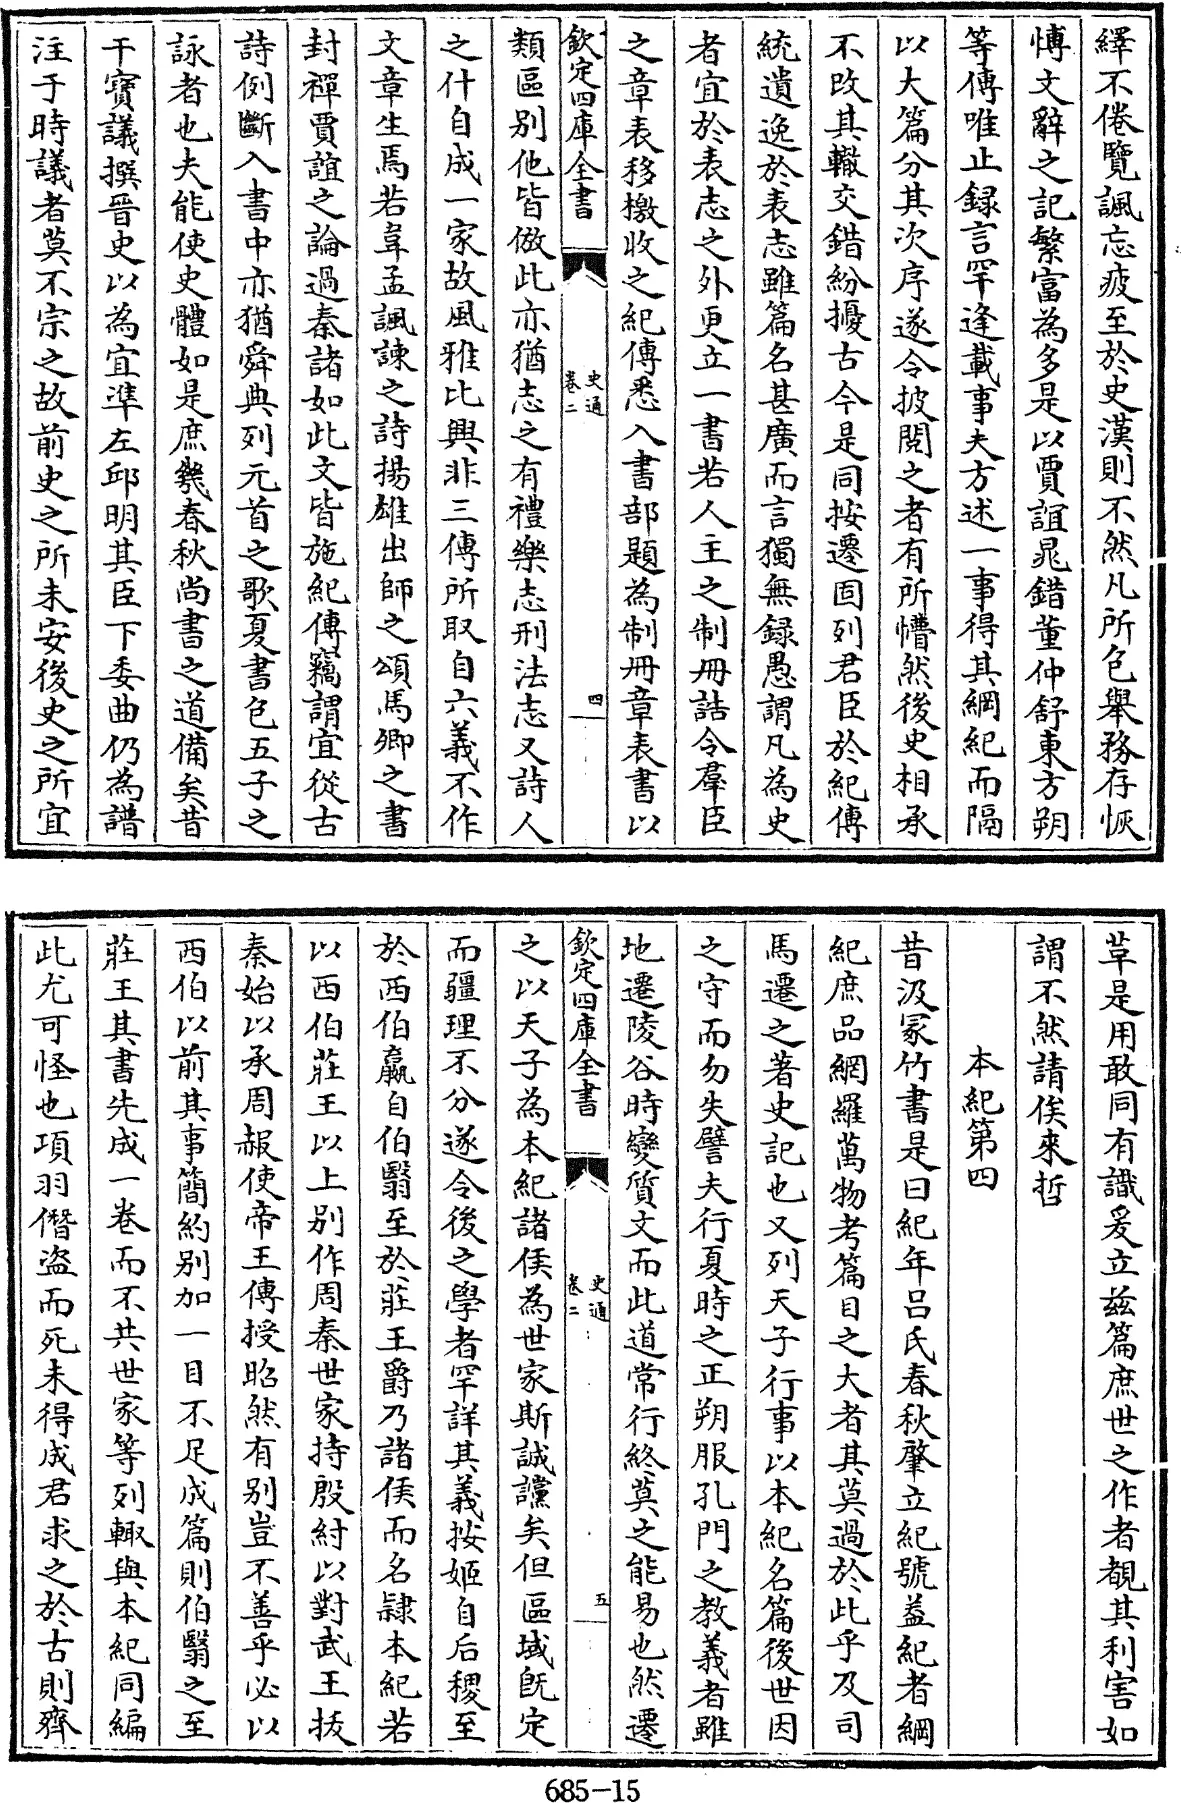 繹不倦覽諷忘疲至於史漢則不然凡所包舉務存恢
愽文辭之記繁富為多是以賈誼晁錯董仲舒東方朔
等傳唯止録言罕逢載事夫方述一事得其綱紀而隔
以大篇分其次序遂令披閲之者有所懵然後史相承
不改其轍交錯紛擾古今是同按遷固列君臣於紀傳
統遺逸於表志雖篇名甚廣而言獨無録愚謂凡為史
者宜於表志之外更立一書若人主之制冊誥令羣臣
之章表移檄收之紀傳悉入書部題為制冊章表書以
欽定四庫全書
史通
卷二
四
類區别他皆倣此亦猶志之有禮樂志刑法志又詩人
之什自成一家故風雅比興非三傳所取自六義不作
文章生焉若韋孟諷諫之詩揚雄出師之頌馬卿之書
封禪賈誼之論過秦諸如此文皆施紀傳竊謂宜從古
詩例斷入書中亦猶舜典列元首之歌夏書包五子之
詠者也夫能使史體如是庶幾春秋尚書之道備矣昔
干寳議撰晉史以為宜準左邱明其臣下委曲仍為譜
注于時議者莫不宗之故前史之所未安後史之所宜
草是用敢同有識爰立兹篇庶世之作者覩其利害如
謂不然請俟來哲
本紀第四
昔汲冢竹書是曰紀年吕氏春秋肇立紀號葢紀者綱
紀庶品網羅萬物考篇目之大者其莫過於此乎及司
馬遷之著史記也又列天子行事以本紀名篇後世因
之守而勿失譬夫行夏時之正朔服孔門之教義者雖
地遷陵谷時變質文而此道常行終莫之能易也然遷
欽定四庫全書
史通
卷二
五
之以天子為本紀諸侯為世家斯誠讜矣但區域既定
而疆理不分遂令後之學者罕詳其義按姬自后稷至
於西伯嬴自伯翳至於莊王爵乃諸侯而名隸本紀若
以西伯莊王以上别作周秦世家持殷紂以對武王拔
秦始以承周赧使帝王傳授昭然有别豈不善乎必以
西伯以前其事簡約别加一目不足成篇則伯翳之至
莊王其書先成一卷而不共世家等列輙與本紀同編
此尤可怪也項羽僭盗而死未得成君求之於古則齊
685-15